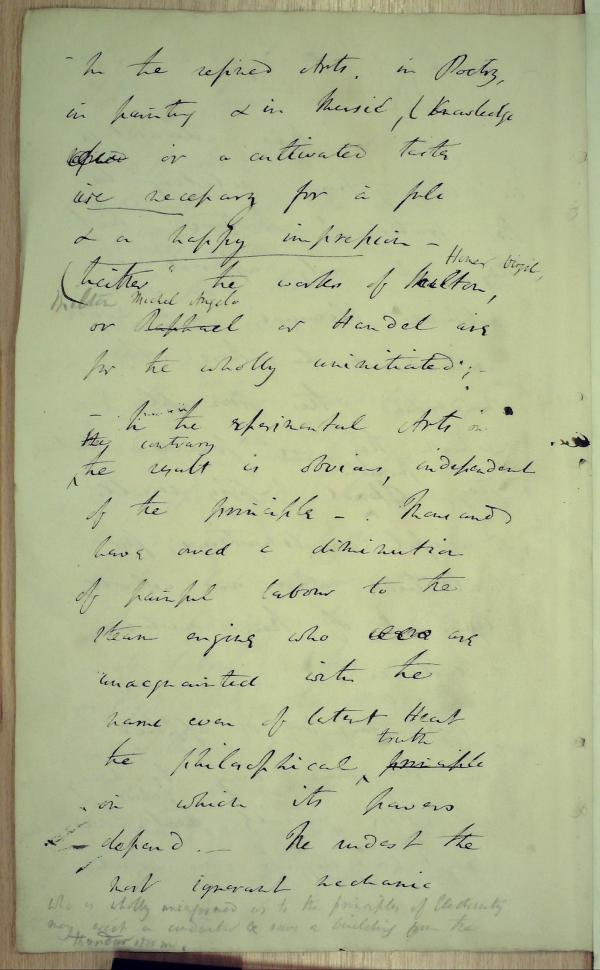 - In the refined Arts. in Poetry,
in painting & in Music, (Knowledge
or a cultivated taste
are necessary for a full
& a happy impression -
Homer Virgil,
(Neither the works of Milton,
Milton Michel Angelo
or Raphael or Handel are
for the wholly uninitiated; -
- In the experimental Arts on
the contrary
the result is obvious, independent
of the principle - . Thousands
have owed a diminution
of painful labour to the
steam engine who were are
unacquainted with the
name even of latent Heat
truth
the philosophical principle
on which its powers
depend. - The rudest the
most ignorant mechanic
who is wholly uninformed as to the principles of Electricity
may erect a conductor & save a building from the
thunder storm.